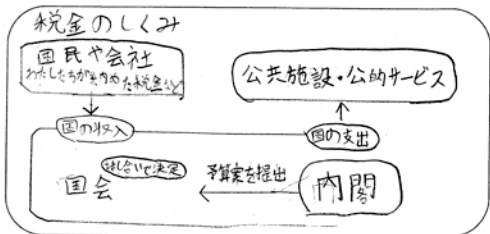 税金のしくみ
国民や会社
わたしたちが納めた税金など
公共施設・公的サービス
国の収入
国の支出
国会
話し合いで決定
予算案を提出
内閣